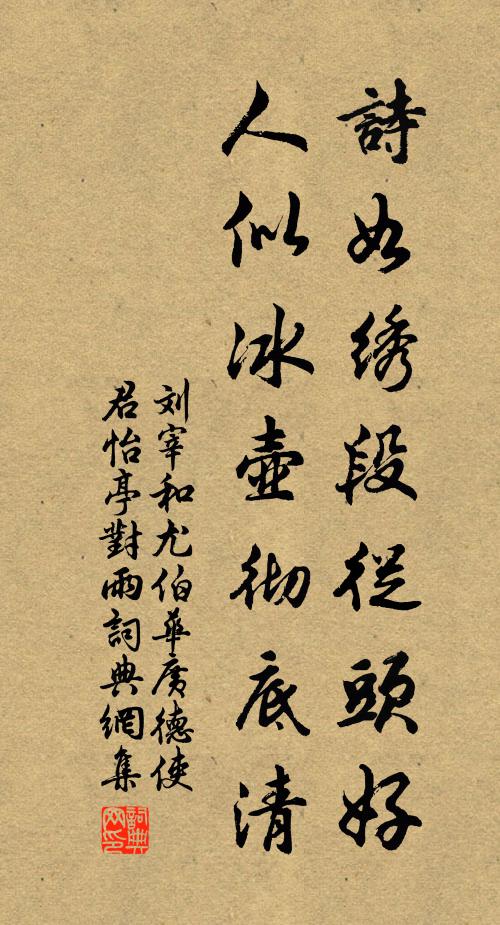 詩如绣段從頭好
人似冰壺彻底清
刘宰和尤伯華廣德使
君怡亭對雨詞典網集
詞典
网印